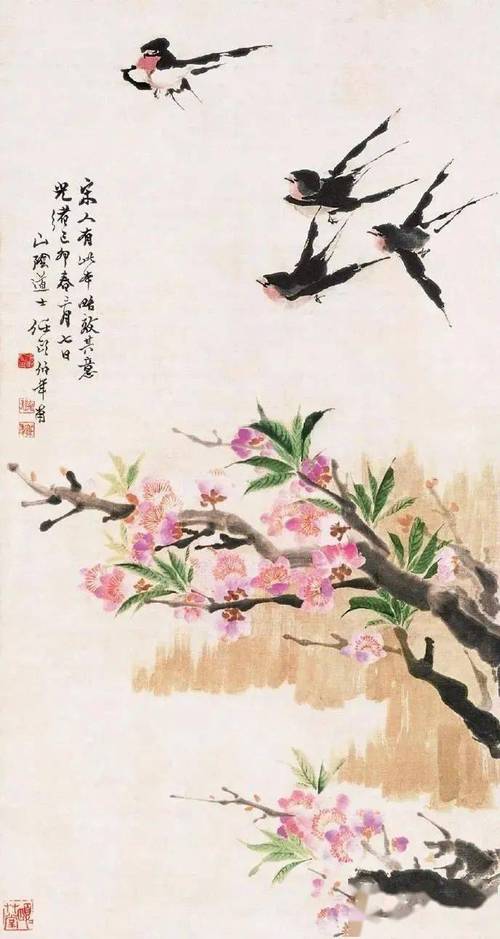 宋人有此本略效其意
光绪己卯春三月七日
山阴道士任颐伯年甫